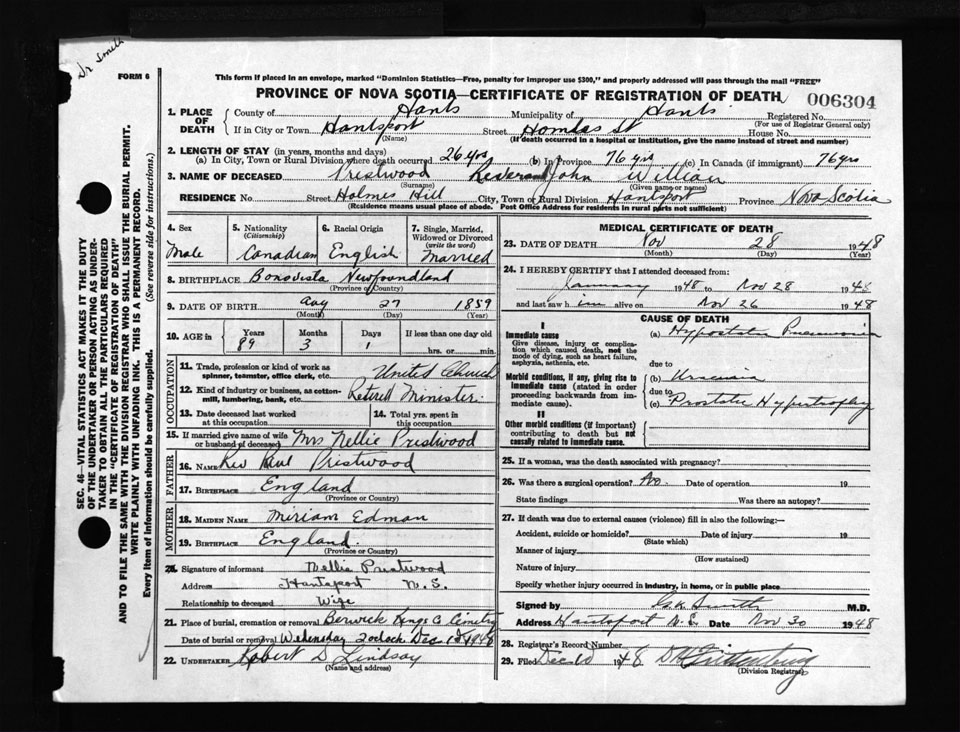 Dr Smith
FORM 6
This form if placed in an envelope, marked "Dominion Statistics—Free, penalty for improper use $300," and properly addressed will pass through the mail "FREE"
PROVINCE OF NOVA SCOTIA—CERTIFICATE OF REGISTRATION OF DEATH
006304
1. PLACE OF DEATH
County of Hants Municipality of Hants Registered No.
(For use of Registrar General only)
If in City or Town Hantsport Street House No.
(Name) (If death occurred in a hospital or institution, give the name instead of street and number)
2. LENGTH OF STAY (in years, months and days)
(a) In City, Town or Rural Division where death occurred 26 yrs (b) in Province 76 yrs (c) in Canada (if immigrant) 76 yrs
3. NAME OF DECEASED Prestwood Reverand John William
(Surname) (Given name or names)
RESIDENCE No. Street Holmes Hill City, Town or Rural Division Hantsport Province Nova Scotia
(Residence means usual place of abode. Post Office Address for residents in rural parts not sufficient)
4. Sex
Male
5. Nationality
(Citizenship)
Canadian
6. Racial Origin
English
7. Single, Married, Widowed or Divorced
(write the word)
Married
8. BIRTHPLACE Bonavista Newfoundland
(Province or Country)
9. DATE OF BIRTH Aug 27 1859
(Month) (Day) (Year)
10. AGE in Years Months Days If less than one day old
89 3 1 hrs. or min.
OCCUPATION
11. Trade, profession or kind of work as spinner, teamster, office clerk, etc. United Church
12. Kind of industry or business, as cotton-mill, lumbering, bank, etc. Retired Minister
13. Date deceased last worked at this occupation
14. Total yrs. spent in this occupation
15. If married give name of wife or husband of deceased Mrs Nellie Prestwood
FATHER
16. NAME Rev Prestwood
17. BIRTHPLACE England
(Province or Country)
MOTHER
18. MAIDEN NAME Miriam Edman
19. BIRTHPLACE England
(Province or Country)
20. Signature of informant Nellie Prestwood
Address Hantsport N.S.
Relationship to deceased Wife
21. Place of burial, cremation or removal Berwick Kings C Cemetry
Date of burial or removal Wednesday 2 oclock Dec 1st 1948
22. UNDERTAKER Robert D Lindsay
(Name and address)
MEDICAL CERTIFICATE OF DEATH
23. DATE OF DEATH Nov 28 1948
(Month) (Day) (Year)
24. I HEREBY CERTIFY that I attended deceased from:
January 1948 to Nov 28 1948
and last saw him alive on Nov 26 1948
CAUSE OF DEATH
I
Immediate cause
Give disease, injury or complication which caused death, not the mode of dying, such as heart failure, asphyxia, asthenia, etc.
(a) Hypostatic Pneumonia
due to
Morbid conditions, if any, giving rise to immediate cause (stated in order proceeding backwards from immediate cause).
(b) Uraemia
due to
(c) Prostatic Hypertrophy
II
Other morbid conditions (if important) contributing to death but not causally related to immediate cause.
25. If a woman, was the death associated with pregnancy?
26. Was there a surgical operation? No. Date of operation 19
State findings Was there an autopsy?
27. If death was due to external causes (violence) fill in also the following:—
Accident, suicide or homicide? Date of injury 19
(State which)
Manner of injury
(How sustained)
Nature of injury
Specify whether injury occurred in industry, in home, or in public place
Signed by Smith M.D.
Address Hantsport N.S. Date Nov 30 1948
28. Registrar's Record Number
29. Filed Dec 10 1948
(Division Registrar)
SEC. 46—VITAL STATISTICS ACT MAKES IT THE DUTY
OF THE UNDERTAKER OR PERSON ACTING AS UNDER-
TAKER TO OBTAIN ALL THE PARTICULARS REQUIRED
IN THE "CERTIFICATE OF REGISTRATION OF DEATH"
AND TO FILE THE SAME WITH THE DIVISION REGISTRAR WHO SHALL ISSUE THE BURIAL PERMIT.
WRITE PLAINLY WITH UNFADING INK. THIS IS A PERMANENT RECORD.
Every item of information should be carefully supplied. (See reverse side for instructions.)